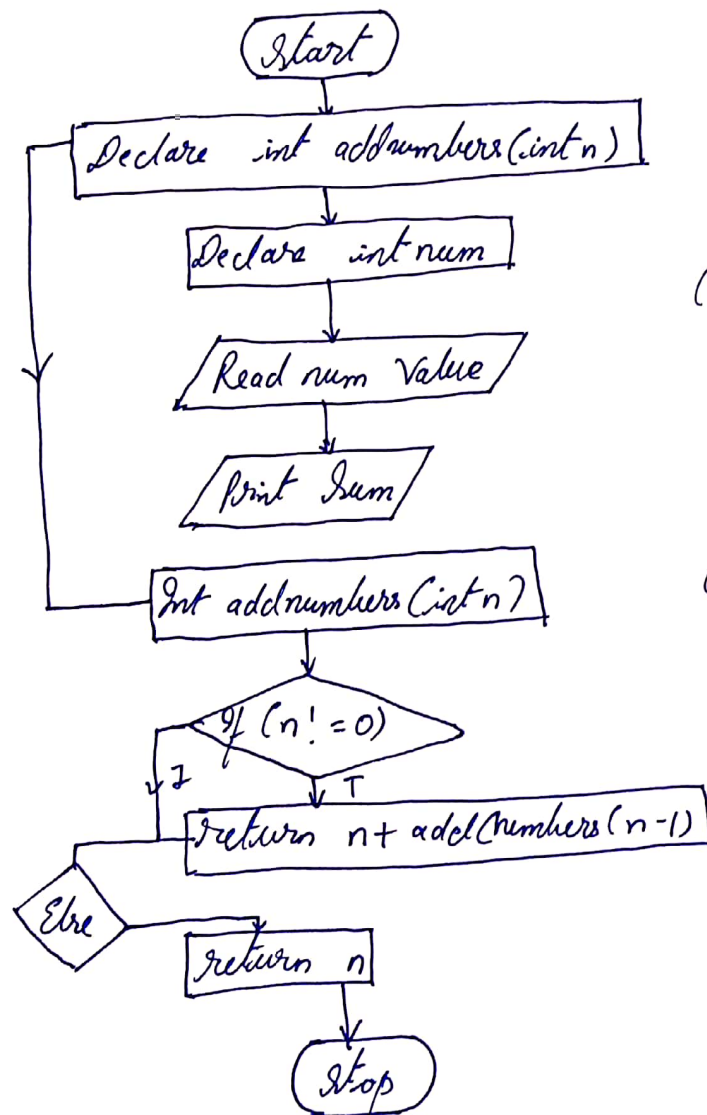 Start
Declare int addnumbers(int n)
Declare int num
Read num Value
Print Sum
Int addnumbers(int n)
If (n! = 0)
T
return n + add(numbers(n-1)
Else
return n
Stop